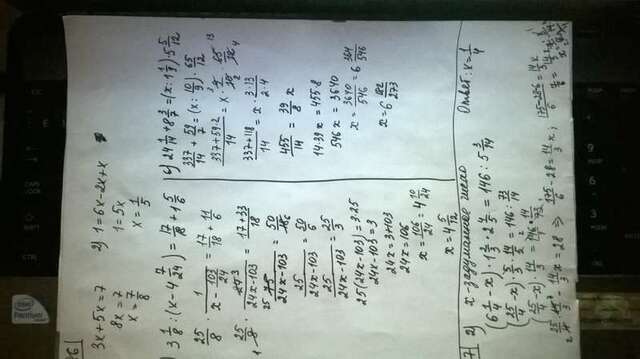 3x+5x=7
8x=7
x=7/8
2) 1=6x-2x+x
1=5x
x=1/5
3 1/8 : (x-4 7/24) = 17/18 + 1 5/6
25/8 · 1/(x - 103/24) = 17/18 + 11/6
25/8 · 24/(24x-103) = (17+33)/18
75/(24x-103) = 50/18
25/(24x-103) = 50/6
25/(24x-103) = 25/3
25(24x-103)=3·25
24x-103=3
24x=3+103
24x=106
x=106/24=4 10/24
x=4 5/12
24 1/14 + 8 3/7 = (x : 1 1/9) · 5 5/12
337/14 + 59/7 = (x : 10/9) · 65/12
(337+59·2)/14 = x · 9/10 · 65/12
(337+118)/14 = x · (3·13)/(2·4)
455/14 = 39/8 x
14·39x=455·8
546x=3640
x=3640/546=6 364/546
x=6 182/273
7 2) x - задуманное число
Ответ: x=1/4
(6 1/4 - x) · 1 2/3 · 2 4/5 = 146 : 5 3/14
(25/4 - x) · 5/3 · 14/5 = 146 : 73/14
(25/4 - x) · 14/3 = 146/1 · 14/73
25/4 · 14/3 - 14/3 x = 28 ⇒ 175/6 - 28 = 14/3 x ; (175-28·6)/6 = 14/3 x